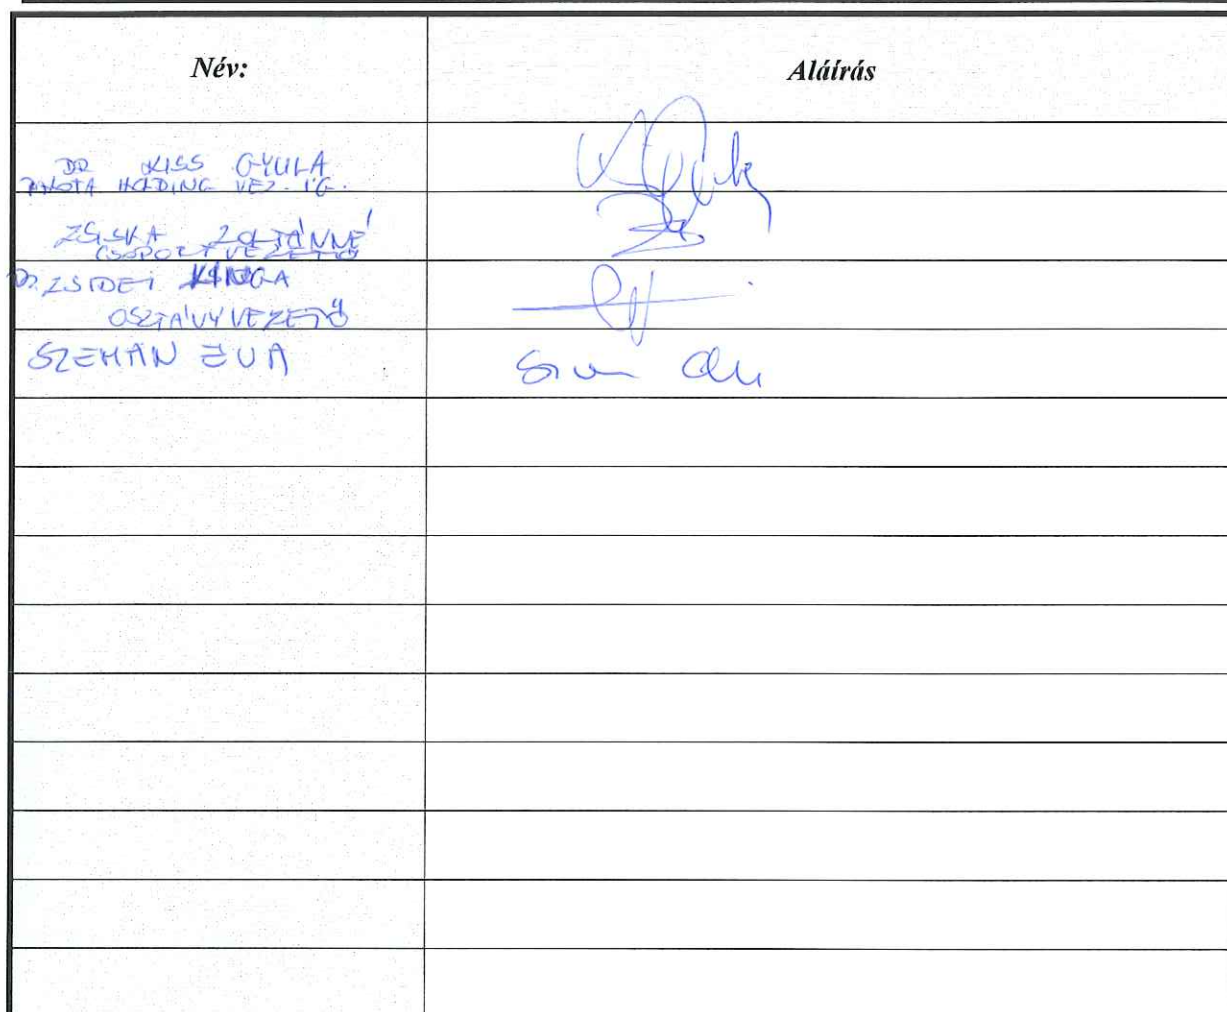 Név: Aláírás
DR KISS GYULA
PALOTA HOLDING VEZ. IG.
ZSISKA ZOLTÁNNÉ
CSOPORTVEZETŐ
DR. ZSIDEI KINGA
OSZTÁLYVEZETŐ
SZEMÁN ÉVA